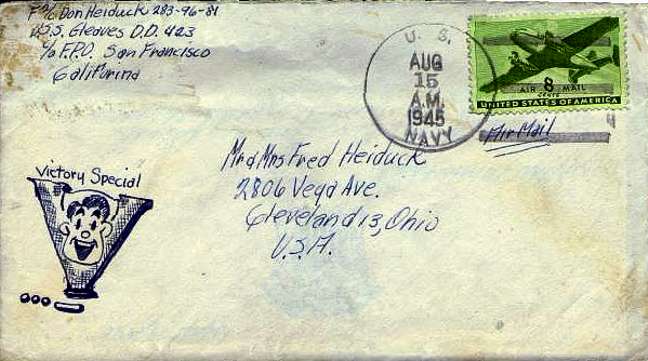 F 2/c Don Heiduck 283-96-81
U.S.S. Gleaves D.D. 423
c/o F.P.O. San Francisco
California
U. S.
AUG
15
A.M.
1945
NAVY
AIR 8 MAIL
CENTS
UNITED STATES OF AMERICA
Air Mail
Victory Special
Mr & Mrs Fred Heiduck
2806 Vega Ave.
Cleveland 13, Ohio
U.S.A.